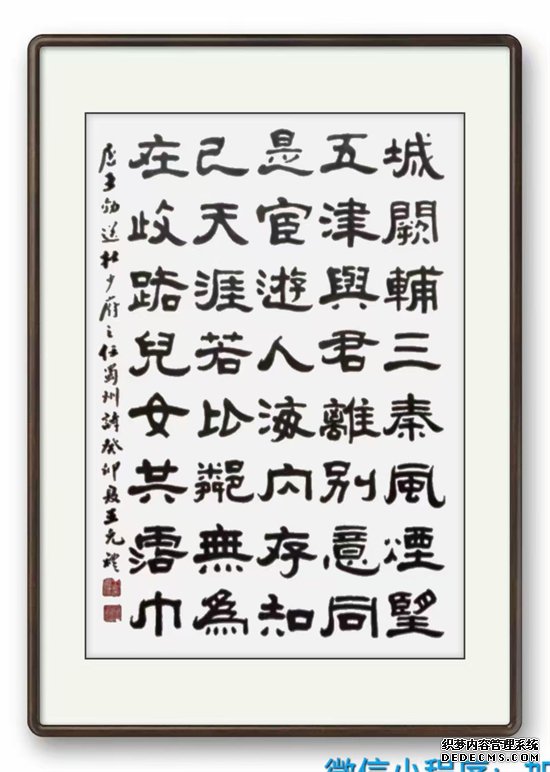 城闕輔三秦風煙望
五津與君離別意同
是宦遊人海内存知
己天涯若比鄰無為
在歧路兒女共霑巾
唐王勃送杜少府之任蜀州詩癸卯夏王元禮
织梦内容管理系统
DEDECMS.COM
微信小程序：